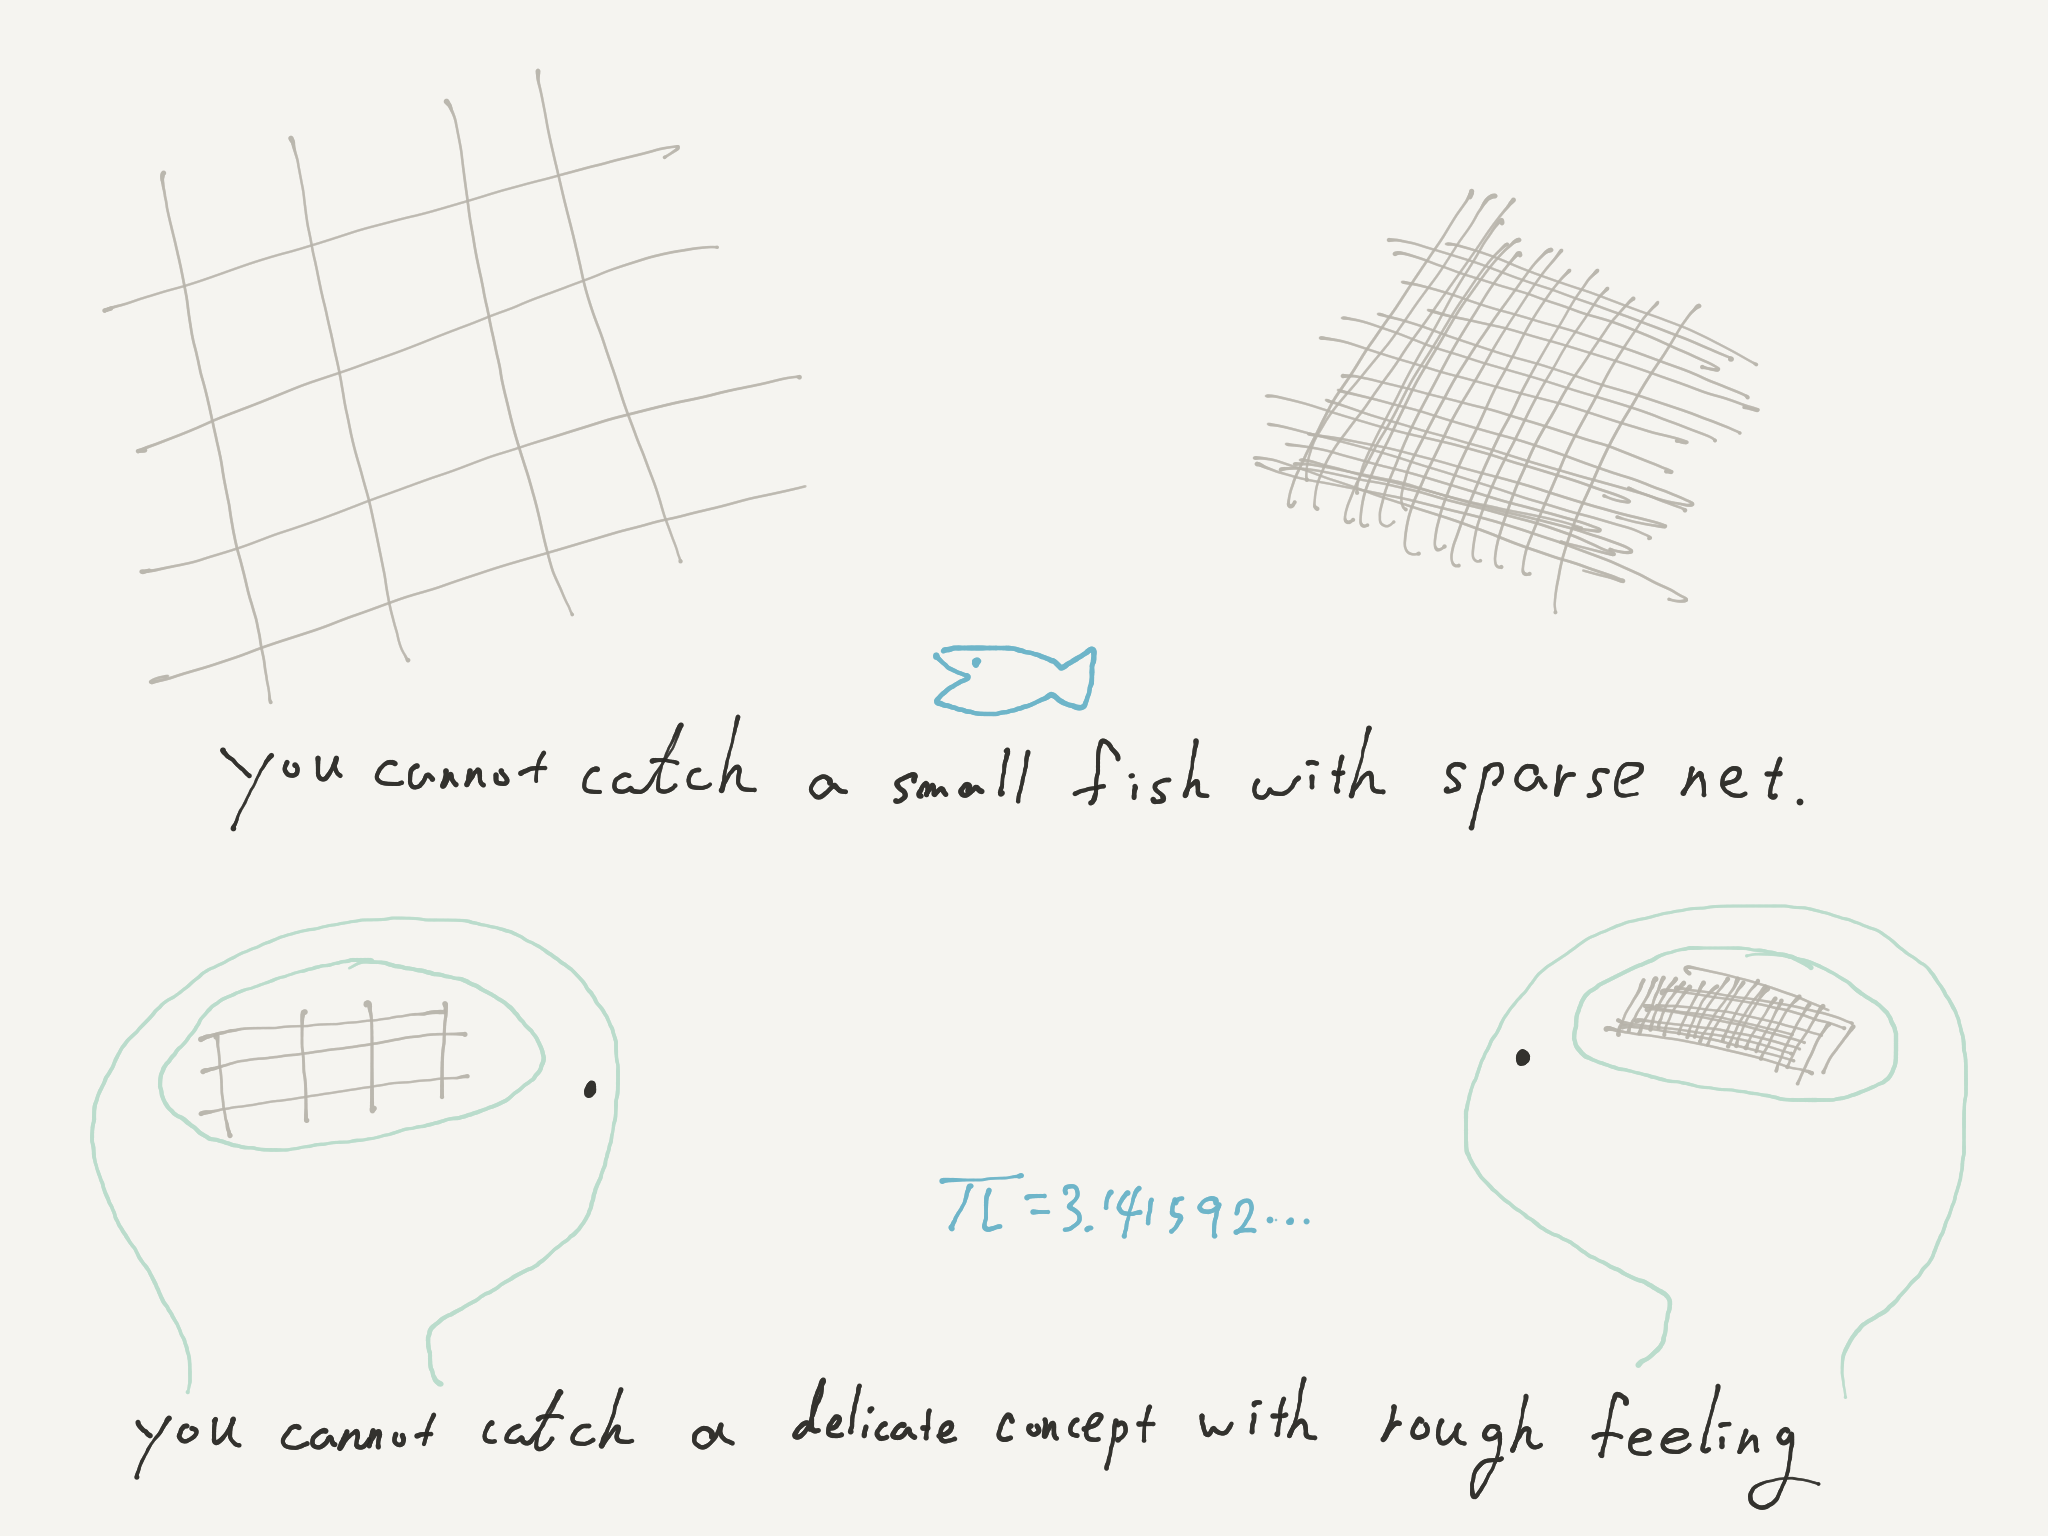 You cannot catch a small fish with sparse net.
π = 3.141592...
you cannot catch a delicate concept with rough feeling